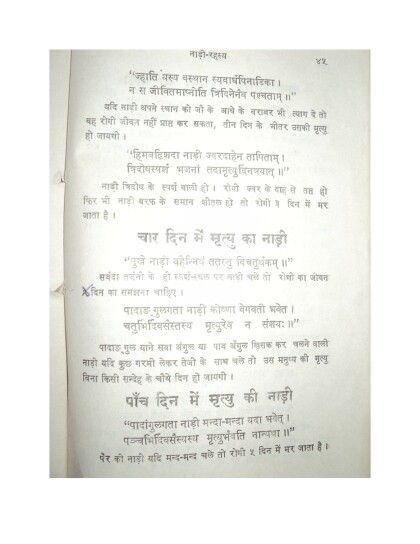 नाड़ी-रहस्य ४५
"ज्हाति यस्य वस्थान स्यवार्धपिनाटिका ।
न स जीवितमाप्नोति त्रिदिनेर्नव पश्चताम् ॥"
यदि नाड़ी अपने स्थान की जौ के आधे के बराबर भी त्याग दे तो
वह रोगी जीवन नहीं प्राप्त कर सकता, तीन दिन के भीतर उसकी मृत्यु
हो जायगी ।
"हिमवद्विशदा नाड़ी ज्वरदाहेन तापिताम् ।
त्रिदोषस्पर्श भजनां तदामृत्युर्दिनत्रयात् ॥"
नाड़ी त्रिदोष के स्पर्श वाली हो । रोगी ज्वर के दाह से तप्त हो
फिर भी नाड़ी बरफ के समान शीतल हो तो रोगी ३ दिन में मर
जाता है ।
चार दिन में मृत्यु का नाड़ी
नाड़ी
सर्वदा तर्जनी के ही स्पर्श-स्थल पर नाड़ी चले तो रोगी का जीवन
दिन का समझना चाहिए ।
पादाङ्गुलगता नाड़ी कोष्णा वेगवती भवेत ।
चतुर्भिदिवसैस्तस्य मृत्युरेव न संशयः ॥"
पादाङ्गुल याने सवा अंगुल या पाव अँगुल खिसक कर चलने वाली
नाड़ी यदि कुछ गरमी लेकर तेजी के साथ चले तो उस मनुष्य की मृत्यु
बिना किसी सन्देह के चौथे दिन हो जायगी ।
पाँच दिन में मृत्यु की नाड़ी
"पादांगुलगता नाड़ी मन्दा-मन्दा यदा भवेत् ।
पञ्चभिर्दिवसैस्यस्य मृत्युर्भवति नान्यथा ॥"
पैर की नाड़ी यदि मन्द-मन्द चले तो रोगी ५ दिन में मर जाता है ।